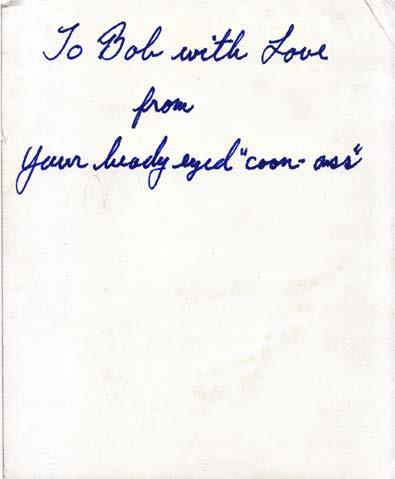 To Bob with Love
from
Your beady eyed "coon-ass"